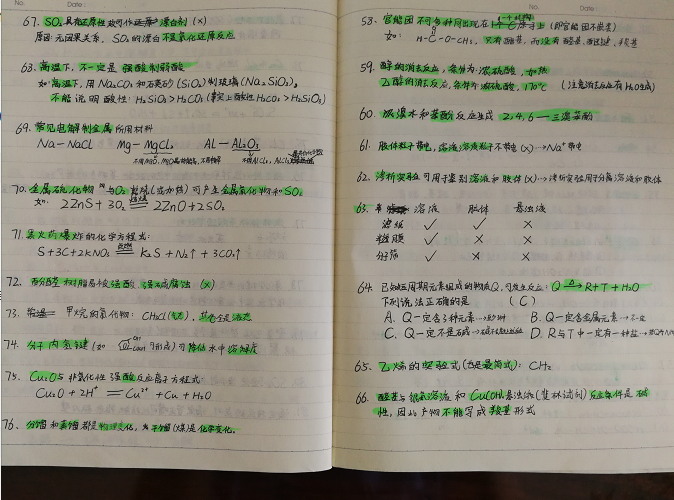 No. Date:
67. SO₂具有还原性故可作还原漂白剂 (×)
原因:无因果关系. SO₂的漂白不是氧化还原反应
68. 高温下,不一定是强酸制弱酸
如:高温下,用Na₂CO₃和石英砂(SiO₂)制玻璃(Na₂SiO₃),
不能说明酸性: H₂SiO₃>H₂CO₃ (事实上酸性H₂CO₃>H₂SiO₃)
69. 常见电解制金属所用材料
Na—NaCl Mg—MgCl₂ Al—Al₂O₃
70. 金属硫化物与O₂ (或加热)可产生金属氧化物和SO₂
如: 2ZnS+3O₂ ══ 2ZnO+2SO₂
71. 黑火药爆炸的化学方程式:
S+3C+2KNO₃ ══ K₂S+N₂↑+3CO₂↑
72. 酚醛树脂易被强酸、强碱腐蚀 (×)
73. 常温 甲烷的氯代物: CH₃Cl(气态),其余全是液态
74. 分子内氢键(如 可形成)可降低水中溶解度
75. Cu₂O与非氧化性强酸反应离子方程式
Cu₂O+2H⁺══Cu²⁺+Cu+H₂O
76. 分馏和蒸馏都是物理变化, 干馏(煤)是化学变化.
No. Date:
58. 官能团不可多种同出现在 上 (即官能团不嵌套)
如: H-C-O-CH₃, 只有酯基,而没有醛基、醚键、羰基
59. 醇的消去反应,条件为:浓硫酸,加热
乙醇的消去反应,条件为:浓硫酸,170℃ (注意消去反应有H₂O生成)
60. 浓溴水和苯酚反应生成 2,4,6—三溴苯酚
61. 胶体粒子带电,溶液溶质粒子不带电 (×)→Na⁺带电
62. 渗析实验可用于鉴别溶液和胶体 (×)→渗析实验用于分离溶液和胶体
63. 溶液 胶体 悬浊液
滤纸 ✓ ✓ ×
半透膜 ✓ × ×
分子筛 ✓ × ×
64. 已知短周期元素组成的物质Q,可发生反应: Q —△→ R+T+H₂O
下列说法正确的是 (C)
A. Q一定含3种元素 B. Q一定含金属元素→不一定
C. Q一定不是碱 D. R与T中一定有一种盐
65. 乙烯的实验式(也是最简式): CH₂
66. 醛基与银氨溶液和Cu(OH)₂悬浊液(斐林试剂)反应条件是碱
性,因此产物不能写成羧基形式